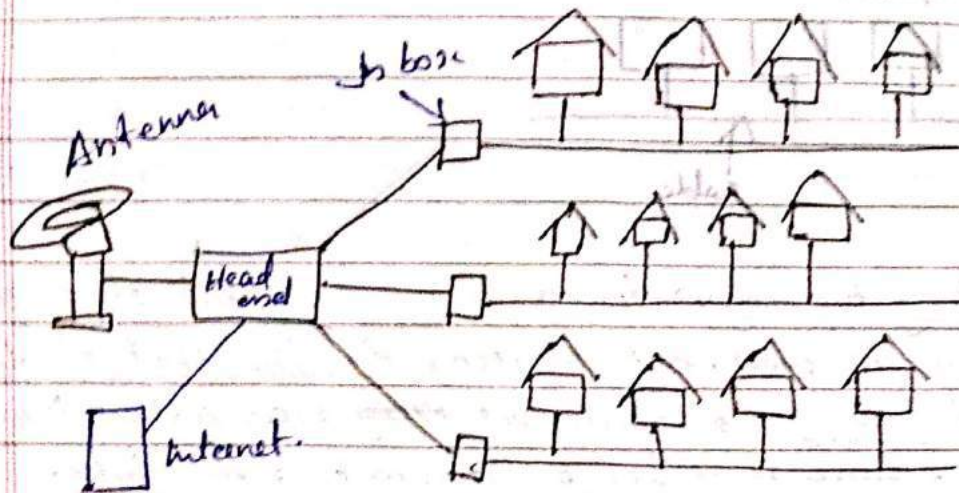 Jn box
Antenna
Head
end
Internet.